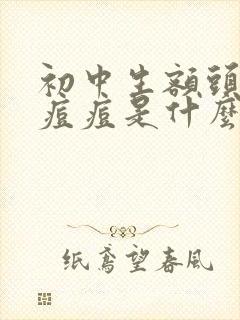 初中生額頭
痘痘是什麼
纸鳶望春風